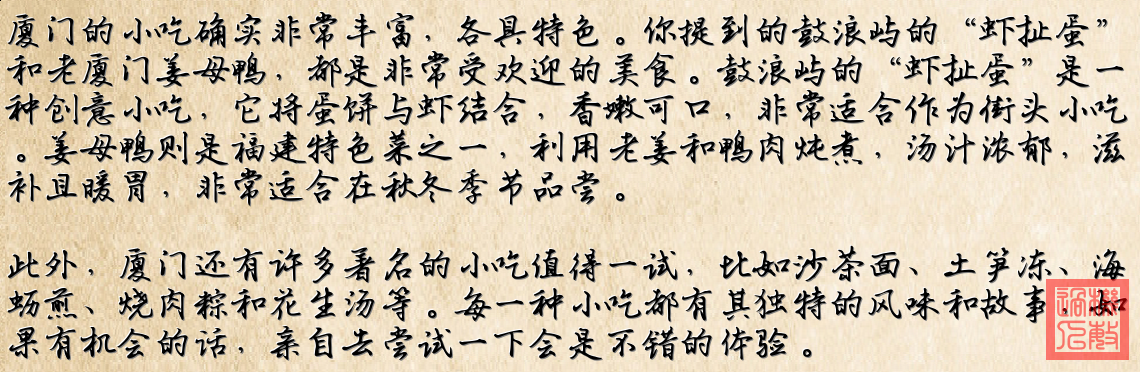 厦门的小吃确实非常丰富，各具特色。你提到的鼓浪屿的“虾扯蛋”
和老厦门姜母鸭，都是非常受欢迎的美食。鼓浪屿的“虾扯蛋”是一
种创意小吃，它将蛋饼与虾结合，香嫩可口，非常适合作为街头小吃
。姜母鸭则是福建特色菜之一，利用老姜和鸭肉炖煮，汤汁浓郁，滋
补且暖胃，非常适合在秋冬季节品尝。
此外，厦门还有许多著名的小吃值得一试，比如沙茶面、土笋冻、海
蛎煎、烧肉粽和花生汤等。每一种小吃都有其独特的风味和故事，如
果有机会的话，亲自去尝试一下会是不错的体验。